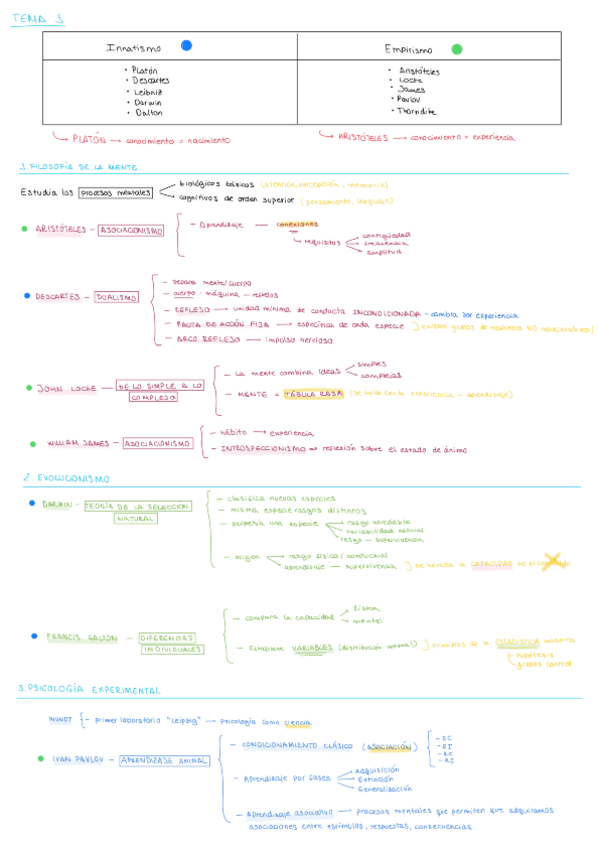 TEMA 1
Innatismo
Empirismo
• Platón
• Descartes
• Leibniz
• Darwin
• Dalton
• Aristóteles
• Locke
• James
• Pavlov
• Thorndite
PLATÓN → conocimiento = nacimiento
ARISTÓTELES → conocimiento = experiencia
1. FILOSOFÍA DE LA MENTE
Estudia los procesos mentales
biológicos básicos (atención, percepción, memoria)
cognitivos de orden superior (pensamiento, lenguaje)
ARISTÓTELES - ASOCIACIONISMO
- Aprendizaje → conexiones
requisitos
contigüedad
frecuencia
similitud
DESCARTES - DUALISMO
- separa mente/cuerpo
- cuerpo = máquina - reflejos
- REFLEJO → unidad mínima de conducta INCONDICIONADA - cambia por experiencia
- PAUTA DE ACCIÓN FIJA → específica de cada especie ] existen grupos de respuestas NO modificadas
- ARCO REFLEJO → impulso nervioso
JOHN LOCKE — DE LO SIMPLE A LO COMPLEJO
- La mente combina ideas
simples
complejas
- MENTE = TÁBULA RASA (se basa con la experiencia - aprendizaje)
WILLIAM JAMES - ASOCIACIONISMO
- hábito → experiencia
- INTROSPECCIONISMO → reflexión sobre el estado de ánimo
2. EVOLUCIONISMO
DARWIN - TEORÍA DE LA SELECCIÓN NATURAL
- clasifica nuevas especies
- misma especie rasgos distintos
- pervivía una especie
rasgo heredable
variabilidad natural
rasgo - supervivencia
- origen
rasgo físico / conductual
aprendizaje — supervivencia ] se hereda la CAPACIDAD no el
FRANCIS GALTON — DIFERENCIAS INDIVIDUALES
- compara la capacidad
física
mental
- Establece VARIABLES (distribución normal) ] principios de la ESTADÍSTICA moderna
hipótesis
grupos control
3. PSICOLOGÍA EXPERIMENTAL
WUNDT { - primer laboratorio "Leipzig" → psicología como ciencia
IVAN PAVLOV - APRENDIZAJE ANIMAL
- CONDICIONAMIENTO CLÁSICO (ASOCIACIÓN)
- EC
- EI
- RC
- RI
- Aprendizaje por fases
Adquisición
Extinción
Generalización
- Aprendizaje asociativo — procesos mentales que permiten que adquiramos
asociaciones entre estímulos, respuestas, consecuencias